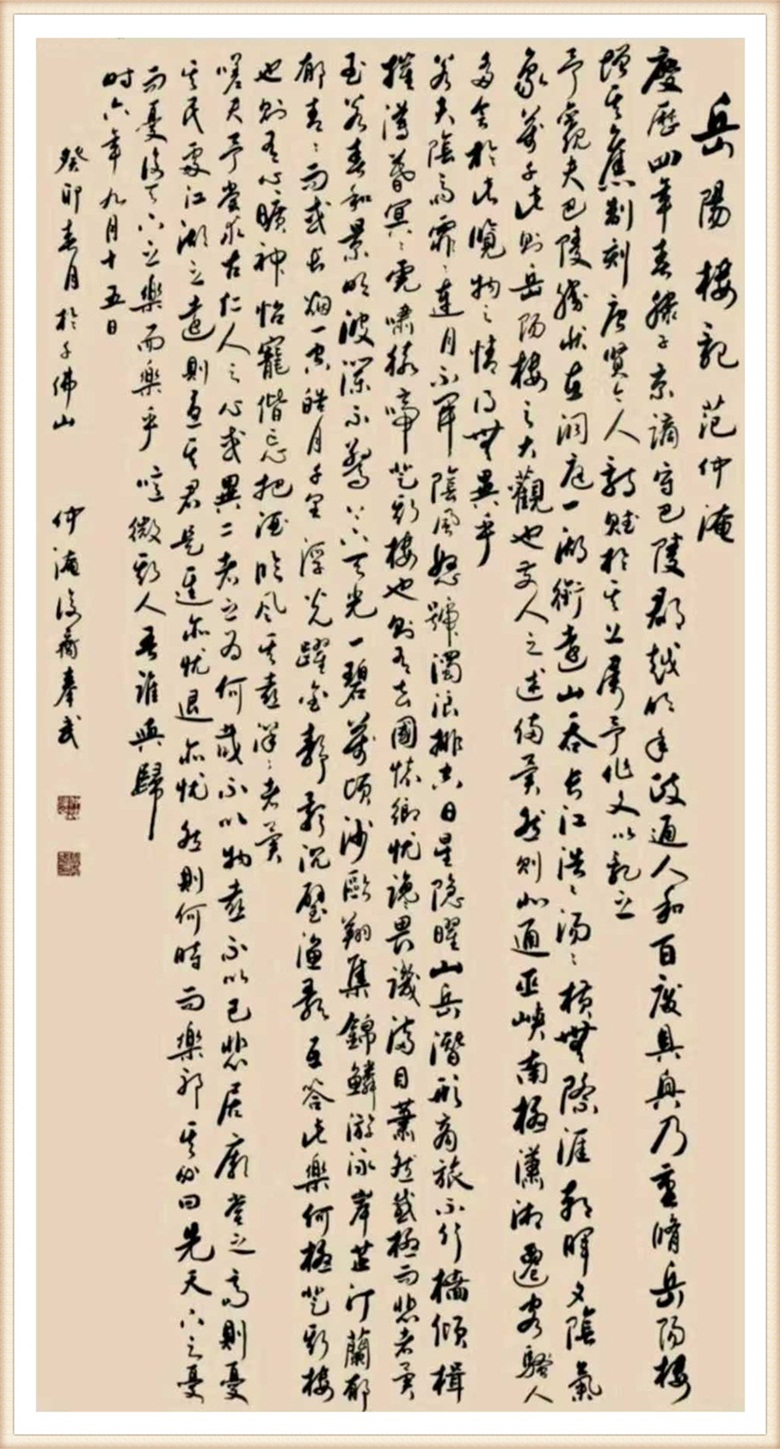 岳陽樓記 范仲淹
慶歷四年春滕子京謫守巴陵郡越明年政通人和百廢具興乃重脩岳陽樓
增其舊制刻唐賢今人詩賦於其上屬予作文以記之
予觀夫巴陵勝狀在洞庭一湖銜遠山吞長江浩浩湯湯橫無際涯朝暉夕陰氣
象萬千此則岳陽樓之大觀也前人之述備矣然則北通巫峽南極瀟湘遷客騷人
多會於此覽物之情得無異乎
若夫陰雨霏霏連月不開陰風怒號濁浪排空日星隱曜山岳潛形商旅不行檣傾楫
摧薄暮冥冥虎嘯猿啼登斯樓也則有去國懷鄉憂讒畏譏滿目蕭然感極而悲者矣
至若春和景明波瀾不驚上下天光一碧萬頃沙鷗翔集錦鱗游泳岸芷汀蘭郁
郁青青而或長煙一空皓月千里浮光躍金靜影沉璧漁歌互答此樂何極登斯樓
也則有心曠神怡寵偕忘把酒臨風其喜洋洋者矣
嗟夫予嘗求古仁人之心或異二者之為何哉不以物喜不以己悲居廟堂之高則憂
其民處江湖之遠則憂其君是進亦憂退亦憂然則何時而樂耶其必曰先天下之憂
而憂後天下之樂而樂乎噫微斯人吾誰與歸
时六年九月十五日
癸卯春月於千佛山 仲淹後裔奉武